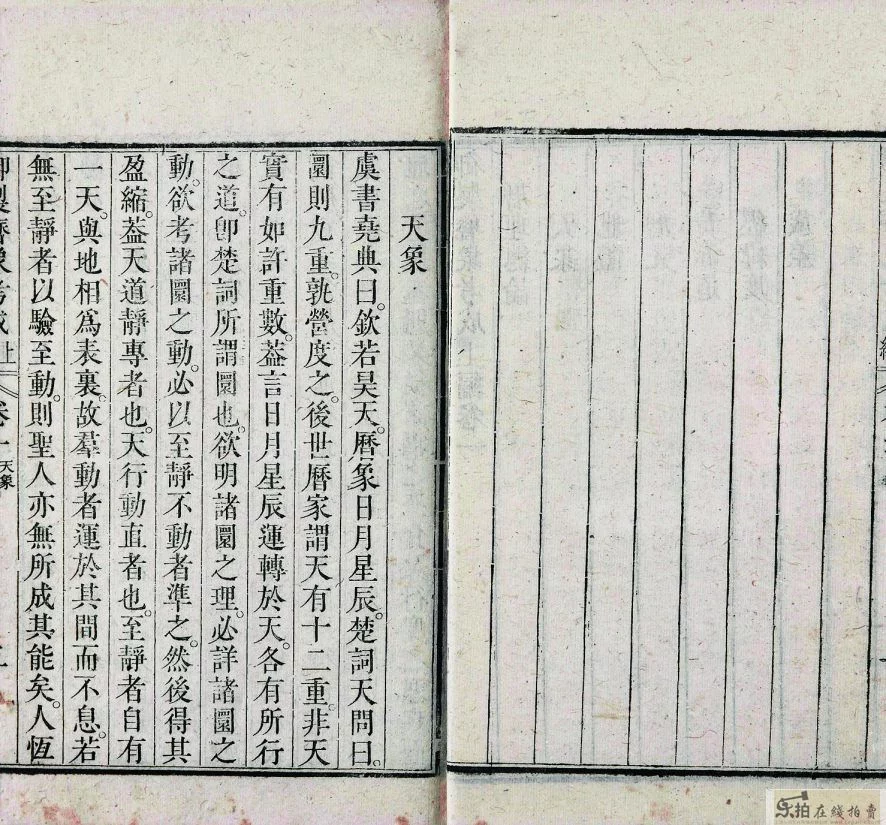 天象
虞書堯典曰。欽若昊天。曆象日月星辰。楚詞天問曰。
圜則九重。孰營度之。後世曆家謂天有十二重。非天
實有如許重數。葢言日月星辰運轉於天。各有所行
之道。卽楚詞所謂圜也。欲明諸圜之理。必詳諸圜之
動。欲考諸圜之動。必以至靜不動者準之。然後得其
盈縮。葢天道靜專者也。天行動直者也。至靜者自有
一天。與地相為表裏。故羣動者運於其間而不息。若
無至靜者以驗至動。則聖人亦無所成其能矣。人恆
卷一 天象
乐拍在线拍賣